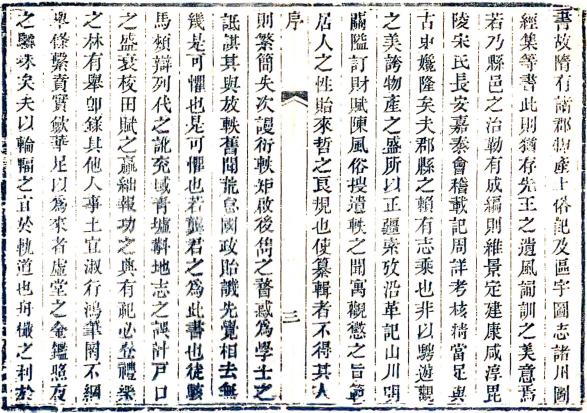 書故隋有諸郡物產土俗記及區宇圖志諸州圖
經集等書此則猶存先王之遺風誦訓之美意焉
若乃縣邑之治勒有成編則維景定建康咸淳毘
陵宋氏長安嘉泰會稽載記周詳考核精當足與
古史媲隆矣夫郡縣之賴有志乘也非以騁遊觀
之美誇物產之盛所以正疆索攷沿革記山川明
關隘訂財賦陳風俗搜遺軼之聞寓觀懲之旨節
居人之性貽來哲之良規也使纂輯者不得其人
序 三
則繁簡失次謾衍軼矩啟後儔之瞀惑為學士之
詆諆其與放軼舊聞荒怠國政貽譏先覺相去無
幾是可懼也是可懼也若龔君之為此書也徒駭
馬頰辯列代之訛兗域青墟斠地志之誤計戶口
之盛衰校田賦之贏絀報功之典有祀必登禮樂
之林有舉卽錄其他人事土宜淑行鴻筆罔不綱
舉條繫賁實斂華足以為來者虛堂之金鑑昭夜
之驪珠矣夫以輪輻之宜於軌道也舟檝之利於